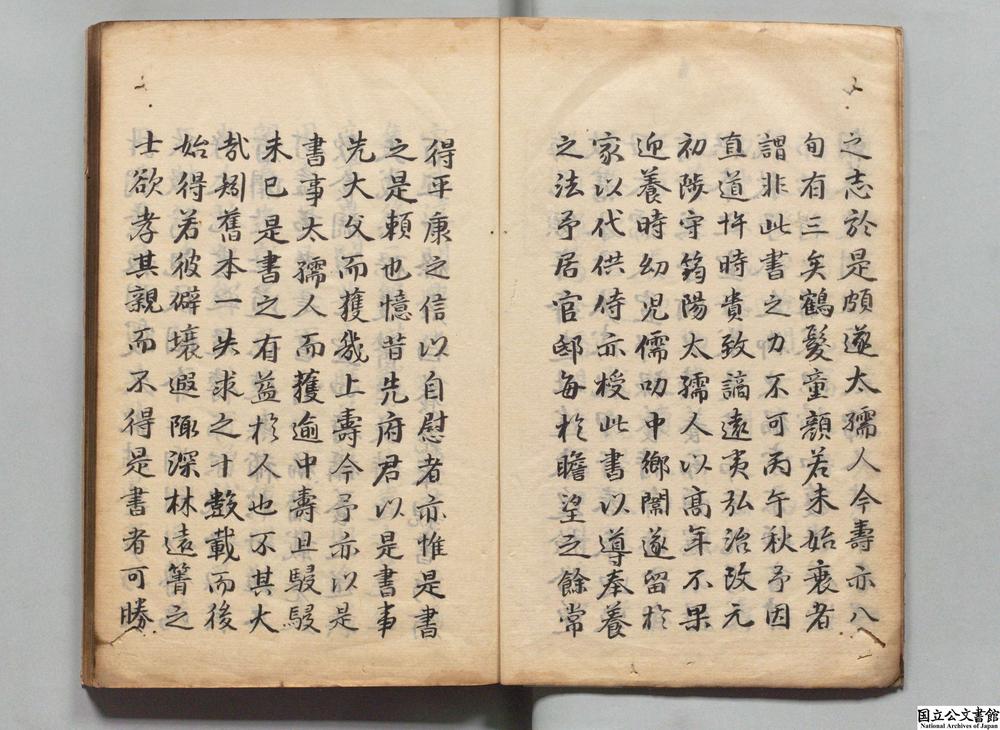 之志於是頗遂太孺人今壽亦八
旬有三矣鶴髮童顏若未始衰者
謂非此書之力不可丙午秋予因
直道忤時貴致謫遠夷弘治改元
初陟守筠陽太孺人以高年不果
迎養時幼兒儒叨中鄉闈遂留於
家以代供侍亦授此書以導奉養
之法予居官邸每於瞻望之餘常
得平康之信以自慰者亦惟是書
之是賴也憶昔先府君以是書事
先大父而獲幾上壽今予亦以是
書事太孺人而獲逾中壽且駸駸
未已是書之有益於人也不其大
哉矧舊本一失求之十數載而後
始得若彼僻壤遐陬深林遠箐之
士欲孝其親而不得是書者可勝
国立公文書館
National Archives of Japan